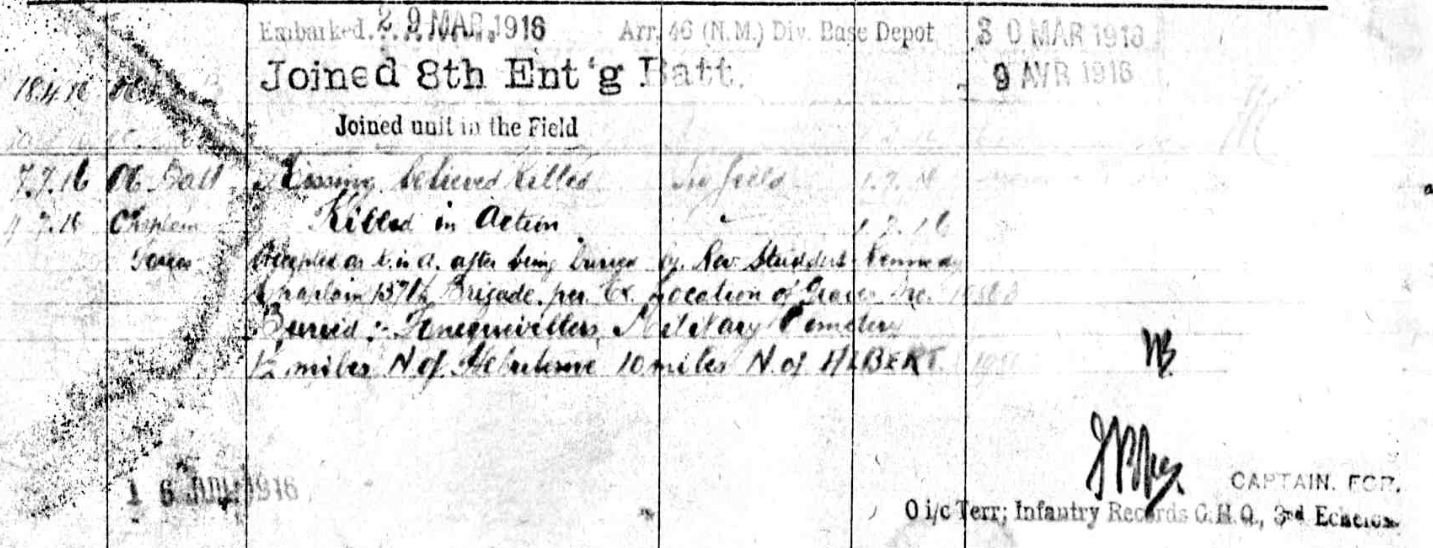 Embarked 29 MAR. 1916 Arr. 46 (N.M.) Div. Base Depot 30 MAR 1916
Joined 8th Ent'g Batt. 9 AVR 1916
18.4.16
Joined unit in the Field
7.7.16 OC Batt Missing believed Killed In field 1.7.16
7.16 Chaplain Killed in Action 1.7.16
Accepted as k. in a. after being buried by Rev Studdert Kennedy
Chaplain 137th Brigade per Location of Graves
Buried :- Military Cemetery
1/2 miles N of Hebuterne 10 miles N. of ALBERT.
16 1916
CAPTAIN. FOR.
O i/c Terr; Infantry Records G.H.Q., 3rd Echelon.